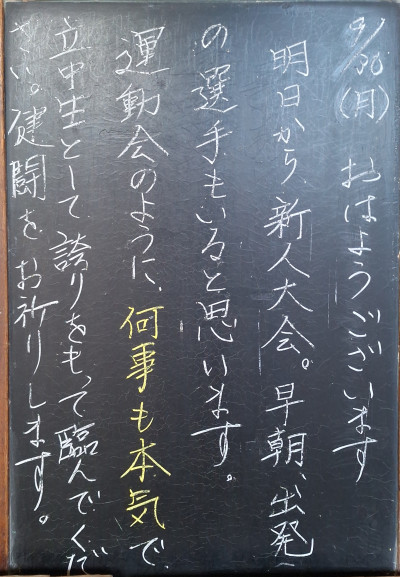 9/30(月) おはようございます
明日から、新人大会。早朝、出発
の選手もいると思います。
運動会のように、何事も本気で
立中生として、誇りをもって臨んでくだ
さい。健闘をお祈りします。